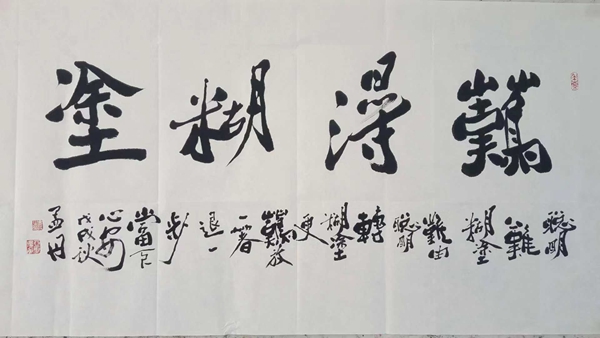 難得糊塗
聰明
難
糊塗
難由
聰明
轉
糊塗
更
難放
一著
退一
步
當下
心安
戊戌秋
孟